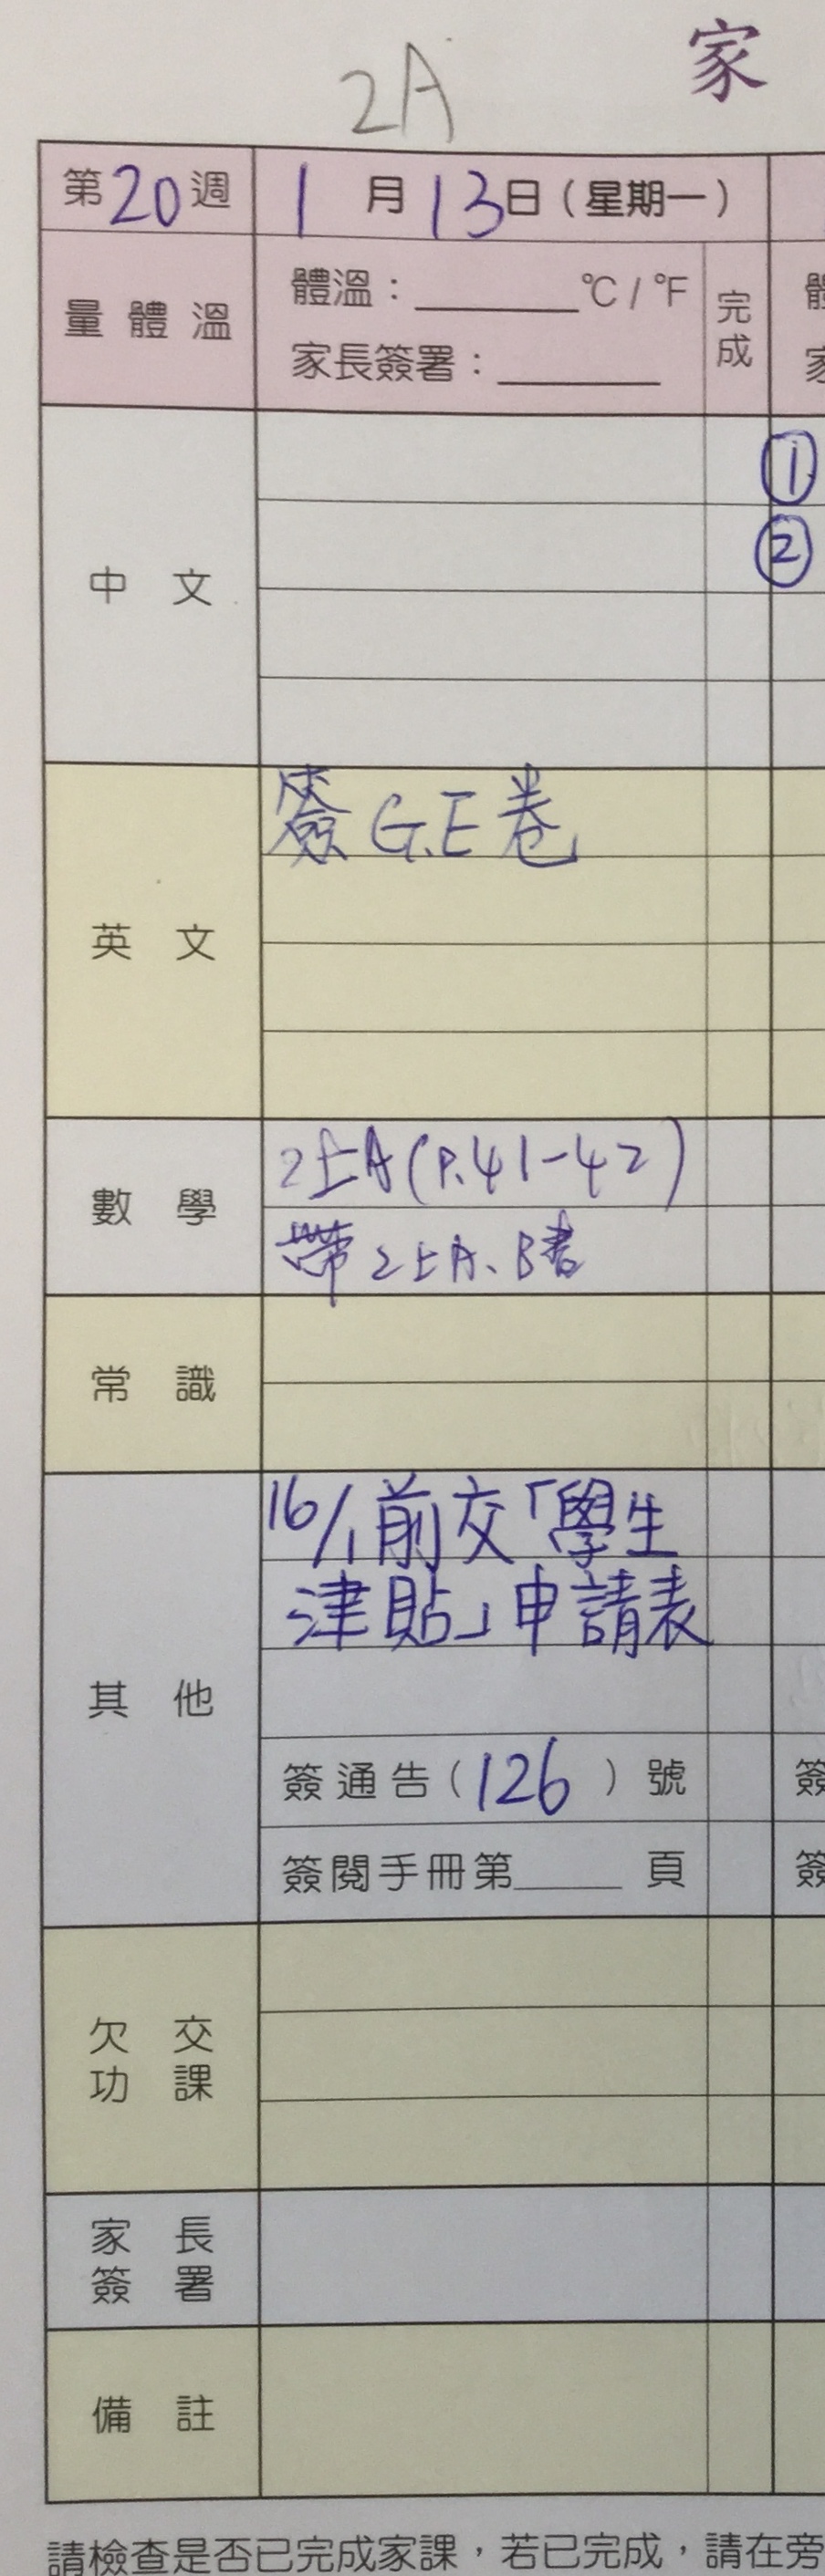 2A
家
第20週 1月13日(星期一)
量體溫
體溫：______°C / °F
家長簽署：______
完成
中文
①
②
英文
簽G.E卷
數學
2上A(P.41-42)
帶2上A、B書
常識
其他
16/1前交「學生
津貼」申請表
簽通告(126)號
簽
簽閱手冊第____頁
簽
欠交
功課
家長
簽署
備註
請檢查是否已完成家課，若已完成，請在旁